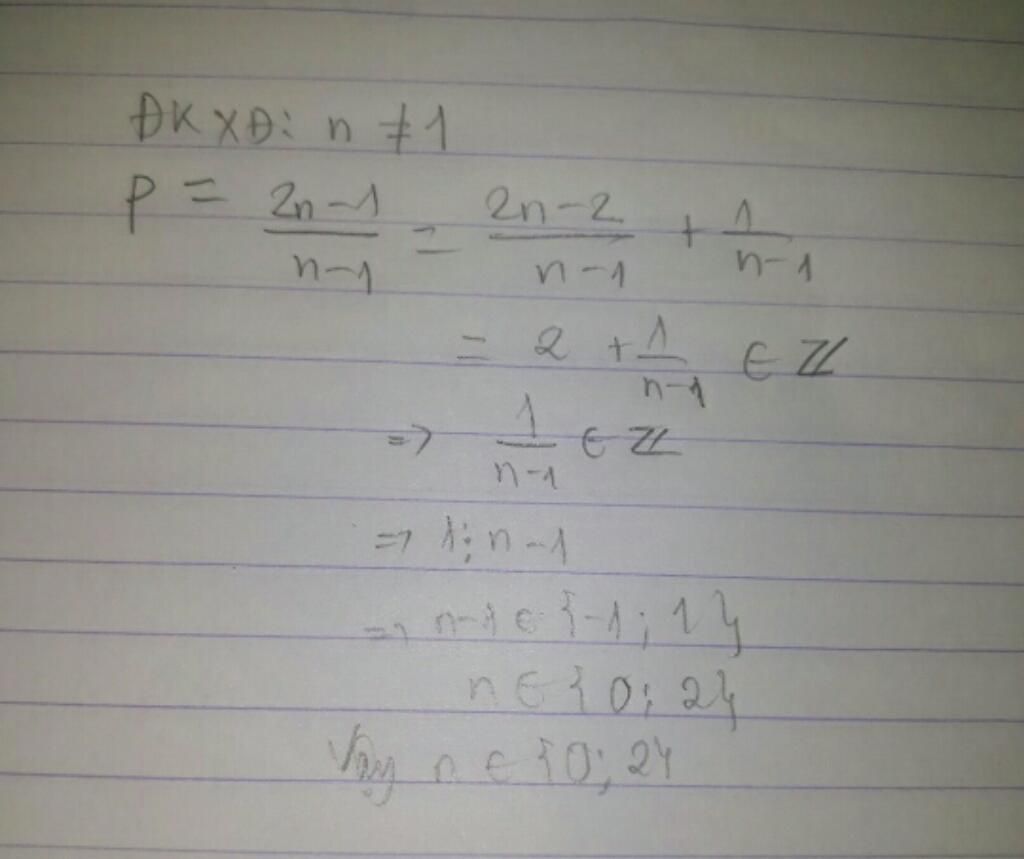 ĐKXĐ: n ≠ 1
P = \frac{2n-1}{n-1} = \frac{2n-2}{n-1} + \frac{1}{n-1}
= 2 + \frac{1}{n-1} ∈ ℤ
=> \frac{1}{n-1} ∈ ℤ
=> 1 ⋮ n-1
=> n-1 ∈ {-1; 1}
n ∈ {0; 2}
Vậy n ∈ {0; 2}